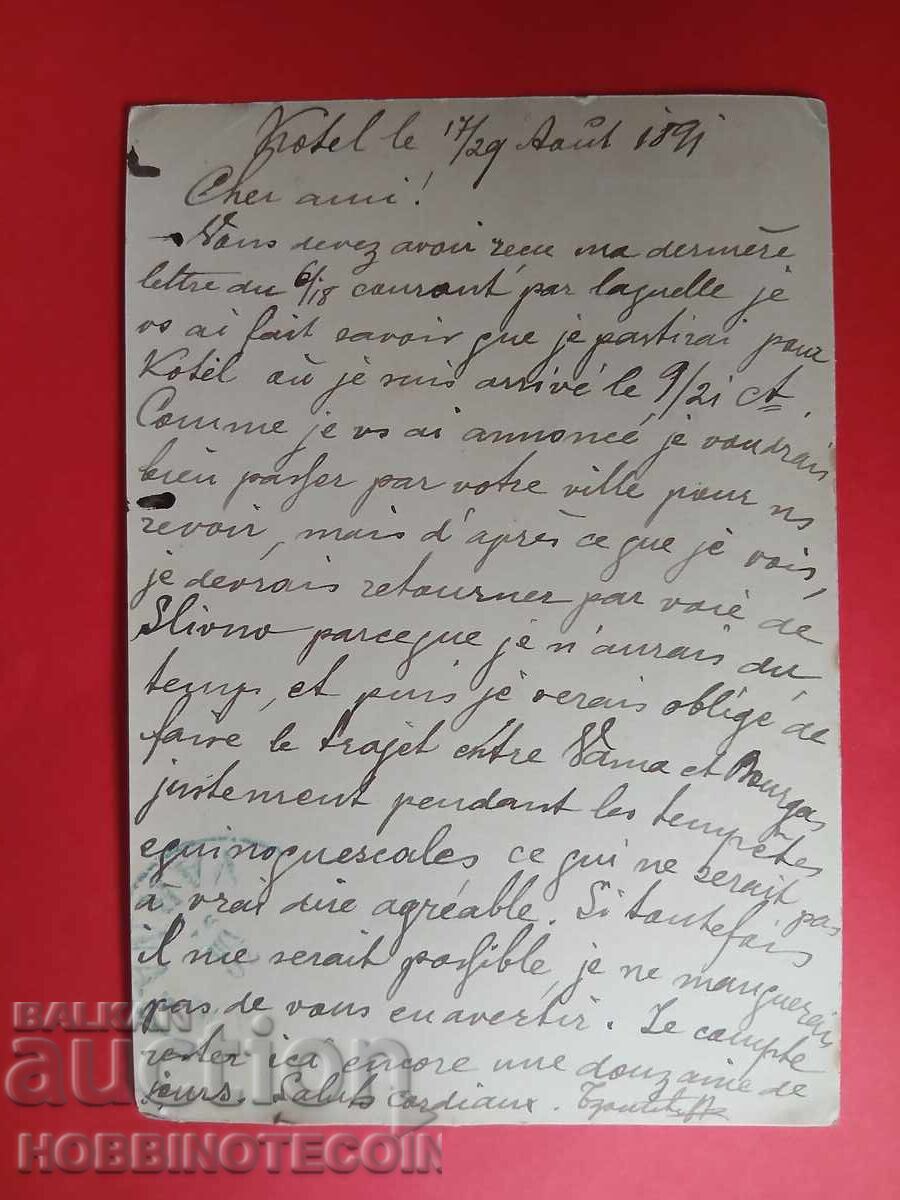 Kotel le 17/29 Août 1891
Cher ami!
Vous devez avoir recu ma dernière
lettre du 6/18 courant par laquelle je
vs ai fait savoir que je partirai pour
Kotel où je suis arrivé le 9/21 ct.
Comme je vs ai annoncé, je voudrais
bien passer par votre ville pour ns
revoir, mais d'après ce que je vois,
je devrais retourner par voie de
Slivno parceque je n'aurais du
temp, et puis je serais obligé de
faire le trajet entre Varna et Bourgas
justement pendant les tempêtes
equinoquescales ce qui ne serait pas
à vrai dire agréable. Si toutefois
il me serait possible, je ne manquerais
pas de vous en avertir. Je compte
rester ici encore une douzaine de
jours. Saluts cordiaux.
BALKAN
auction
HOBBINOTECOIN